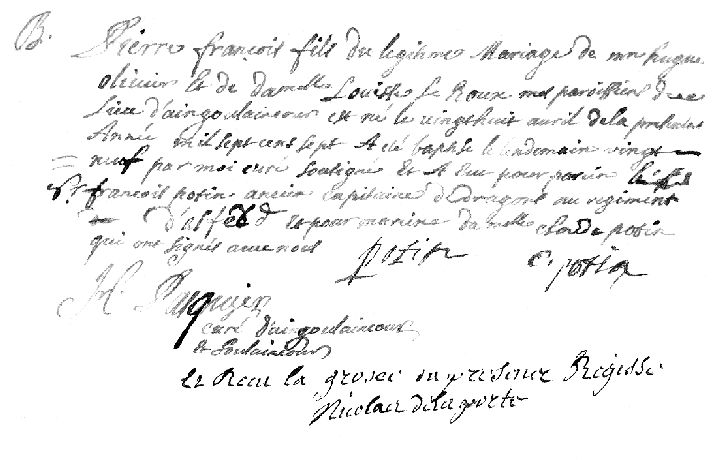 B. Pierre françois fils du legitime Mariage de mre hugue
olivier et de damelle Louisse le Roux mes paroissiens de ce
Lieu d'aingoulaincour est né le vingthuit avril dela presente
Année mil sept cens sept A eté baptisé le lendemain vingt
neuf par moi curé soussigné et A eu pour parein
françois potin ancien Capitaine de dragons au regiment
d'alfeld et pour mareine damelle claude potin
qui ont signés avec nous potin C. potin
H. Paquier
curé d'aingoulaincour
et Soulaincour
Nicolas delaporte